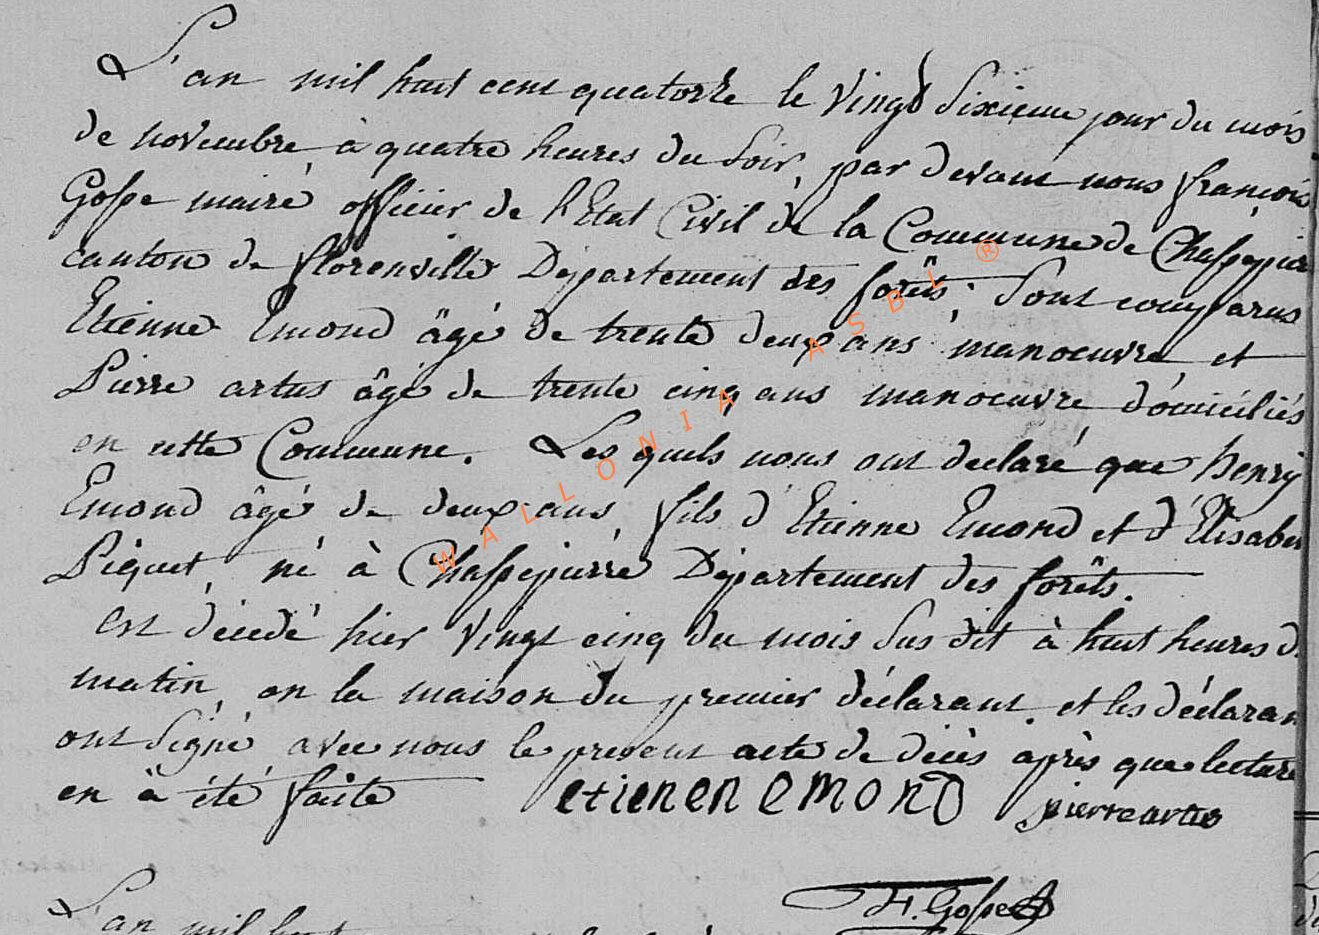 L'an mil huit cent quatorze le vingt Sixieme jour du mois
de novembre à quatre heures du Soir, par devant nous françois
Gosse maire officier de l'Etat Civil de la Commune de Chassepierre
canton de florenville Département des forêts, Sont comparus
Etienne Emond âgé de trente deux ans manoeuvre et
Pierre artus âgé de trente cinq ans manoeuvre domiciliés
en cette Commune. Les quels nous ont déclaré que henry
Emond âgé de deux ans, fils d'Etienne Emond et d'Elisabet
Piquet, né à Chassepierre Département des forêts.
est décédé hier vingt cinq du mois Sus dit à huit heures d
matin, en la maison du premier déclarant. et les déclaran
ont Signé avec nous le present acte de décès après que lecture
en à été faite
etienen emond
pierre artus
F. Gosse
L'an mil huit
WALLONIA ASBL ®